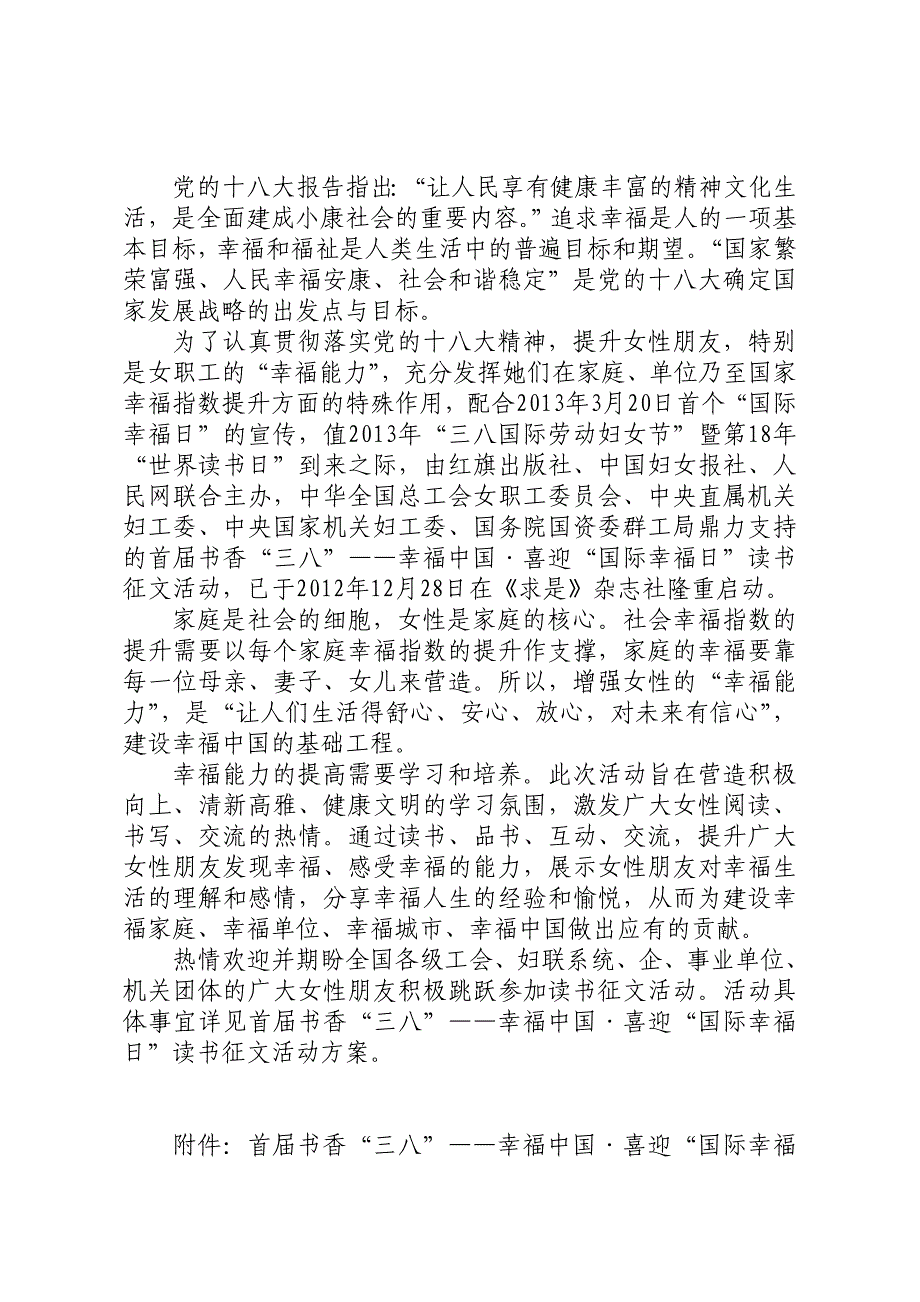 党的十八大报告指出：“让人民享有健康丰富的精神文化生
活，是全面建成小康社会的重要内容。”追求幸福是人的一项基
本目标，幸福和福祉是人类生活中的普遍目标和期望。“国家繁
荣富强、人民幸福安康、社会和谐稳定”是党的十八大确定国
家发展战略的出发点与目标。
为了认真贯彻落实党的十八大精神，提升女性朋友，特别
是女职工的“幸福能力”，充分发挥她们在家庭、单位乃至国家
幸福指数提升方面的特殊作用，配合2013年3月20日首个“国际
幸福日”的宣传，值2013年“三八国际劳动妇女节”暨第18年
“世界读书日”到来之际，由红旗出版社、中国妇女报社、人
民网联合主办，中华全国总工会女职工委员会、中央直属机关
妇工委、中央国家机关妇工委、国务院国资委群工局鼎力支持
的首届书香“三八”——幸福中国·喜迎“国际幸福日”读书
征文活动，已于2012年12月28日在《求是》杂志社隆重启动。
家庭是社会的细胞，女性是家庭的核心。社会幸福指数的
提升需要以每个家庭幸福指数的提升作支撑，家庭的幸福要靠
每一位母亲、妻子、女儿来营造。所以，增强女性的“幸福能
力”，是“让人们生活得舒心、安心、放心，对未来有信心”，
建设幸福中国的基础工程。
幸福能力的提高需要学习和培养。此次活动旨在营造积极
向上、清新高雅、健康文明的学习氛围，激发广大女性阅读、
书写、交流的热情。通过读书、品书、互动、交流，提升广大
女性朋友发现幸福、感受幸福的能力，展示女性朋友对幸福生
活的理解和感情，分享幸福人生的经验和愉悦，从而为建设幸
福家庭、幸福单位、幸福城市、幸福中国做出应有的贡献。
热情欢迎并期盼全国各级工会、妇联系统、企、事业单位、
机关团体的广大女性朋友积极跳跃参加读书征文活动。活动具
体事宜详见首届书香“三八”——幸福中国·喜迎“国际幸福
日”读书征文活动方案。
附件：首届书香“三八”——幸福中国·喜迎“国际幸福